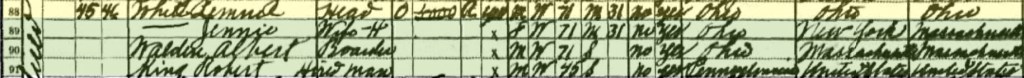 88 45 46 White Head O 4000 R yes M W 71 M 31 no yes Ohio Ohio Ohio
89 Jennie Wife H x F W 71 M 31 no yes Ohio New York Massachusetts
90 Walden Albert Boarder x M W 71 S no yes Ohio Massachusetts Massachusetts
King Robert Hired man x M W S no yes Pennsylvania United States United States